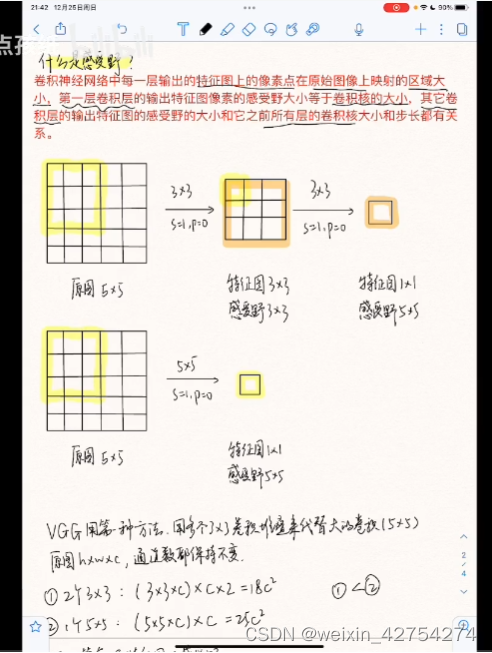 21:42 12月25日周日
90%
什么是感受野？
卷积神经网络中每一层输出的特征图上的像素点在原始图像上映射的区域大
小，第一层卷积层的输出特征图像素的感受野大小等于卷积核的大小，其它卷
积层的输出特征图的感受野的大小和它之前所有层的卷积核大小和步长都有关
系。
3×3
s=1,p=0
3×3
s=1,p=0
原图5×5
特征图3×3
感受野3×3
特征图1×1
感受野5×5
5×5
s=1,p=0
原图5×5
特征图1×1
感受野5×5
VGG用第一种方法,用多个3×3卷积堆叠来代替大的卷积(5×5)
原图h×w×c,通道数都保持不变.
①2个3×3:(3×3×c)×c×2=18c²
①<②
②1个5×5:(5×5×c)×c=25c²
2
4
CSDN @weixin_42754274